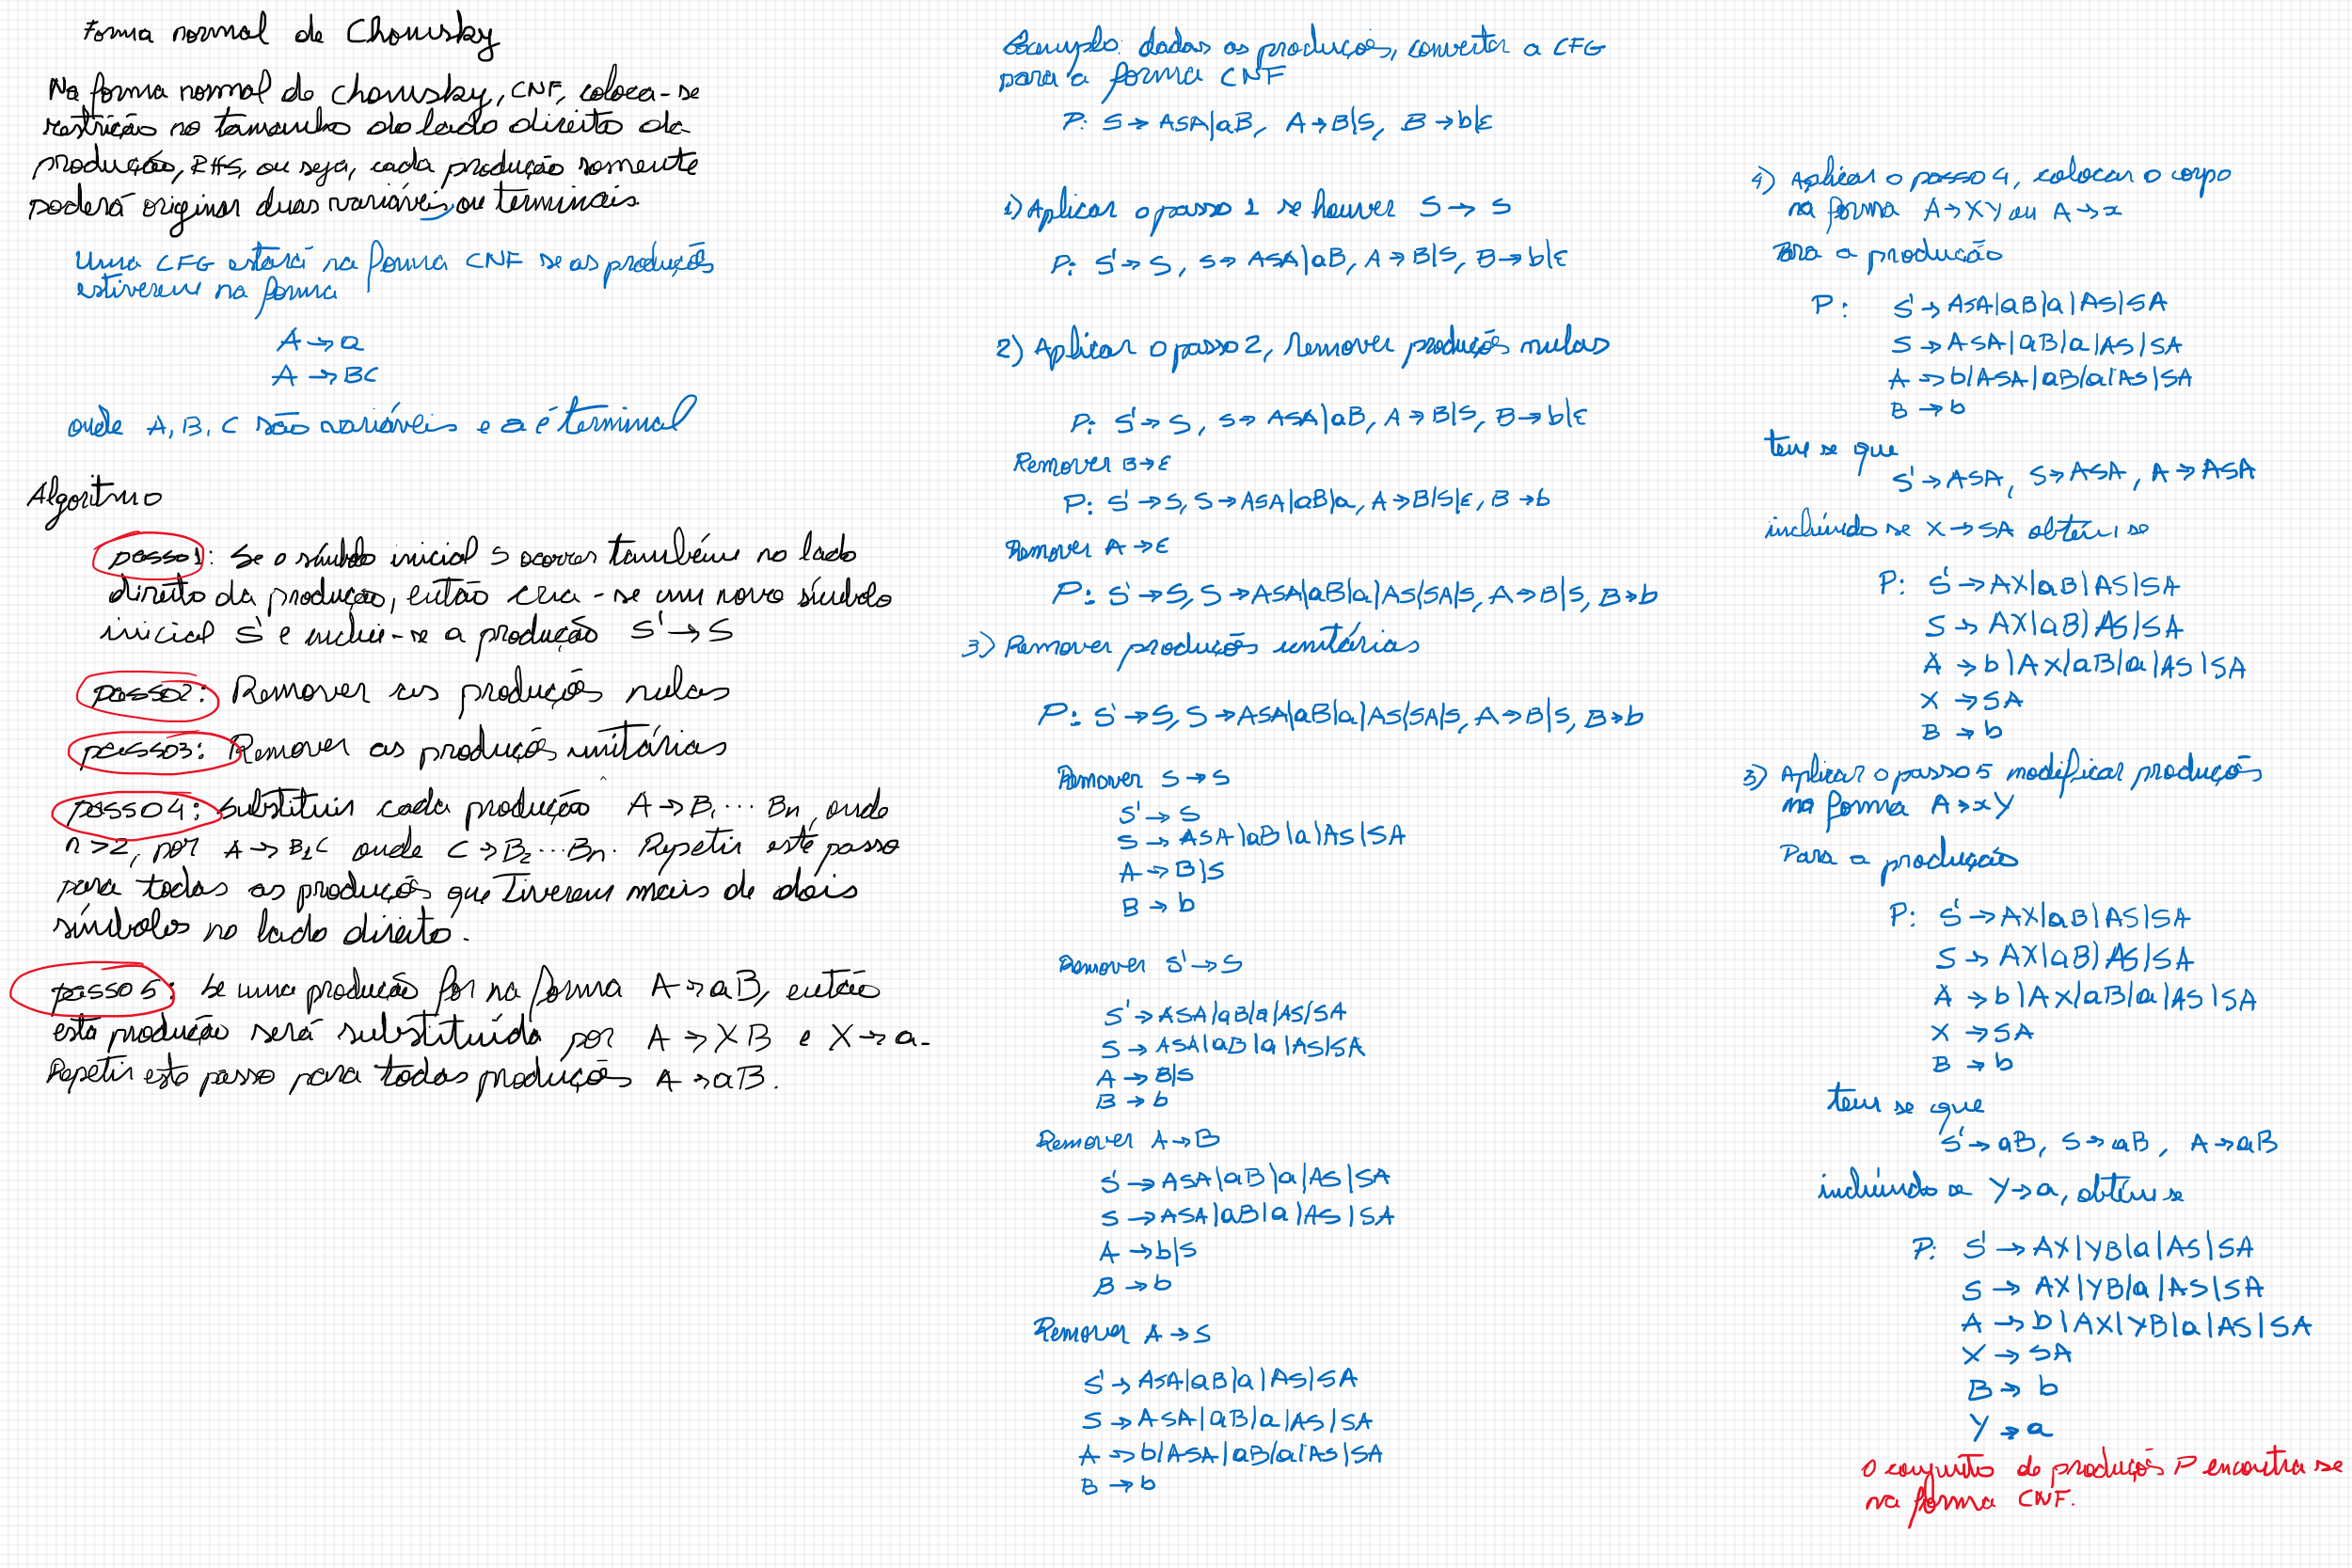 Forma normal de Chomsky
Na forma normal de Chomsky, CNF, coloca-se
restrição no tamanho do lado direito da
produção, RHS, ou seja, cada produção somente
poderá originar duas variáveis, ou terminais.
Uma CFG estará na forma CNF se as produções
estiverem na forma
A → a
A → BC
onde A, B, C são variáveis e a é terminal
Algoritmo
passo1: Se o símbolo inicial S ocorrer também no lado
direito da produção, então cria-se um novo símbolo
inicial S' e inclui-se a produção S' → S
passo2: Remover as produções nulas
passo3: Remover as produções unitárias
passo4: Substituir cada produção A → B₁ ... Bn, onde
n > 2, por A → B₁C onde C → B₂ ... Bn. Repetir este passo
para todas as produções que tiverem mais de dois
símbolos no lado direito.
passo5: Se uma produção for na forma A → aB, então
esta produção será substituída por A → XB e X → a.
Repetir este passo para todas produções A → aB.
Exemplo: dadas as produções, converter a CFG
para a forma CNF
P: S → ASA|aB, A → B|S, B → b|ε
1) Aplicar o passo 1 se houver S → S
P: S' → S, S → ASA|aB, A → B|S, B → b|ε
2) Aplicar o passo 2, remover produções nulas
P: S' → S, S → ASA|aB, A → B|S, B → b|ε
Remover B → ε
P: S' → S, S → ASA|aB|a, A → B|S|ε, B → b
Remover A → ε
P: S' → S, S → ASA|aB|a|AS|SA|S, A → B|S, B → b
3) Remover produções unitárias
P: S' → S, S → ASA|aB|a|AS|SA|S, A → B|S, B → b
Remover S → S
S' → S
S → ASA|aB|a|AS|SA
A → B|S
B → b
Remover S' → S
S' → ASA|aB|a|AS|SA
S → ASA|aB|a|AS|SA
A → B|S
B → b
Remover A → B
S' → ASA|aB|a|AS|SA
S → ASA|aB|a|AS|SA
A → b|S
B → b
Remover A → S
S' → ASA|aB|a|AS|SA
S → ASA|aB|a|AS|SA
A → b|ASA|aB|a|AS|SA
B → b
4) Aplicar o passo 4, colocar o corpo
na forma A → XY ou A → x
Para a produção
P: S' → ASA|aB|a|AS|SA
S → ASA|aB|a|AS|SA
A → b|ASA|aB|a|AS|SA
B → b
tem se que
S' → ASA, S → ASA, A → ASA
incluindo se X → SA obtém se
P: S' → AX|aB|AS|SA
S → AX|aB|AS|SA
A → b|AX|aB|a|AS|SA
X → SA
B → b
5) Aplicar o passo 5 modificar produções
na forma A → xY
Para a produção
P: S' → AX|aB|AS|SA
S → AX|aB|AS|SA
A → b|AX|aB|a|AS|SA
X → SA
B → b
tem se que
S' → aB, S → aB, A → aB
incluindo se Y → a, obtém se
P: S' → AX|YB|a|AS|SA
S → AX|YB|a|AS|SA
A → b|AX|YB|a|AS|SA
X → SA
B → b
Y → a
O conjunto de produções P encontra se
na forma CNF.